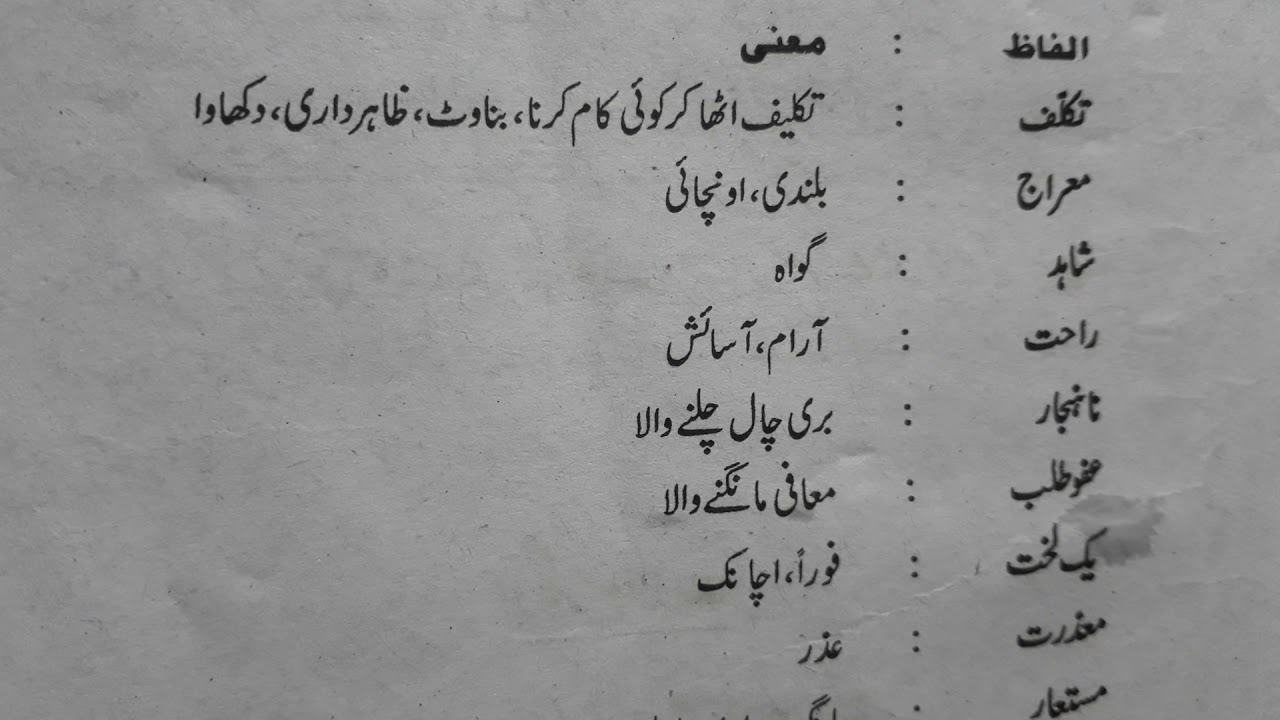 الفاظ : معنی
تکلّف : تکلیف اٹھا کر کوئی کام کرنا، بناوٹ، ظاہرداری، دکھاوا
معراج : بلندی، اونچائی
شاہد : گواہ
راحت : آرام، آسائش
ناہنجار : بری چال چلنے والا
عفو طلب : معافی مانگنے والا
یک لخت : فوراً، اچانک
معذرت : عذر
مستعار :